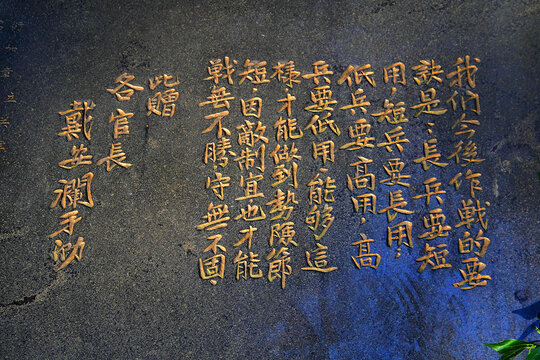 我们今後作戰的要
訣是：長兵要短
用，短兵要長用，
低兵要高用，高
兵要低用，能够這
樣，才能做到勢險節
短，因敵制宜也才能
戰無不勝守無不固。
此贈
各官長
戴安瀾手泐